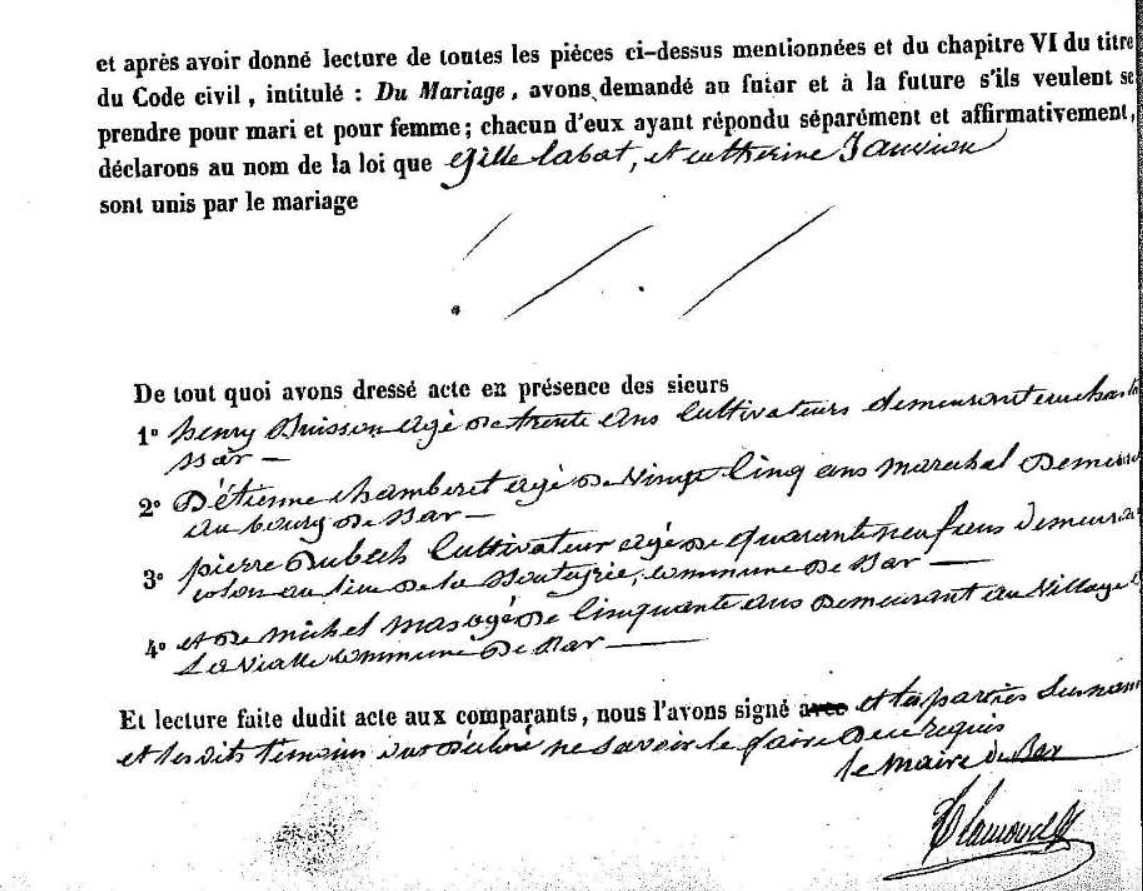 et après avoir donné lecture de toutes les pièces ci-dessus mentionnées et du chapitre VI du titre
du Code civil, intitulé : Du Mariage, avons demandé au futur et à la future s'ils veulent se
prendre pour mari et pour femme; chacun d'eux ayant répondu séparément et affirmativement,
déclarons au nom de la loi que Gille Labat, et catherine
sont unis par le mariage
De tout quoi avons dressé acte en présence des sieurs
1° henry Buisson agé de trente ans Cultivateurs demeurant
Bar —
2° D'étienne chamberet agé de Vingt Cinq ans marechal Demeu
au bourg De Bar —
3° pierre Dubech Cultivateur agé de quarante neuf ans Demeura
colon au lieu De la commune De Bar —
4° et De michel mas agé De Cinquante ans Demeurant au Village
La Vialle commune De Bar —
Et lecture faite dudit acte aux comparants, nous l'avons signé avec et les parties
et les dits temoins ont déclaré ne savoir le faire De ce requis
le maire De Bar